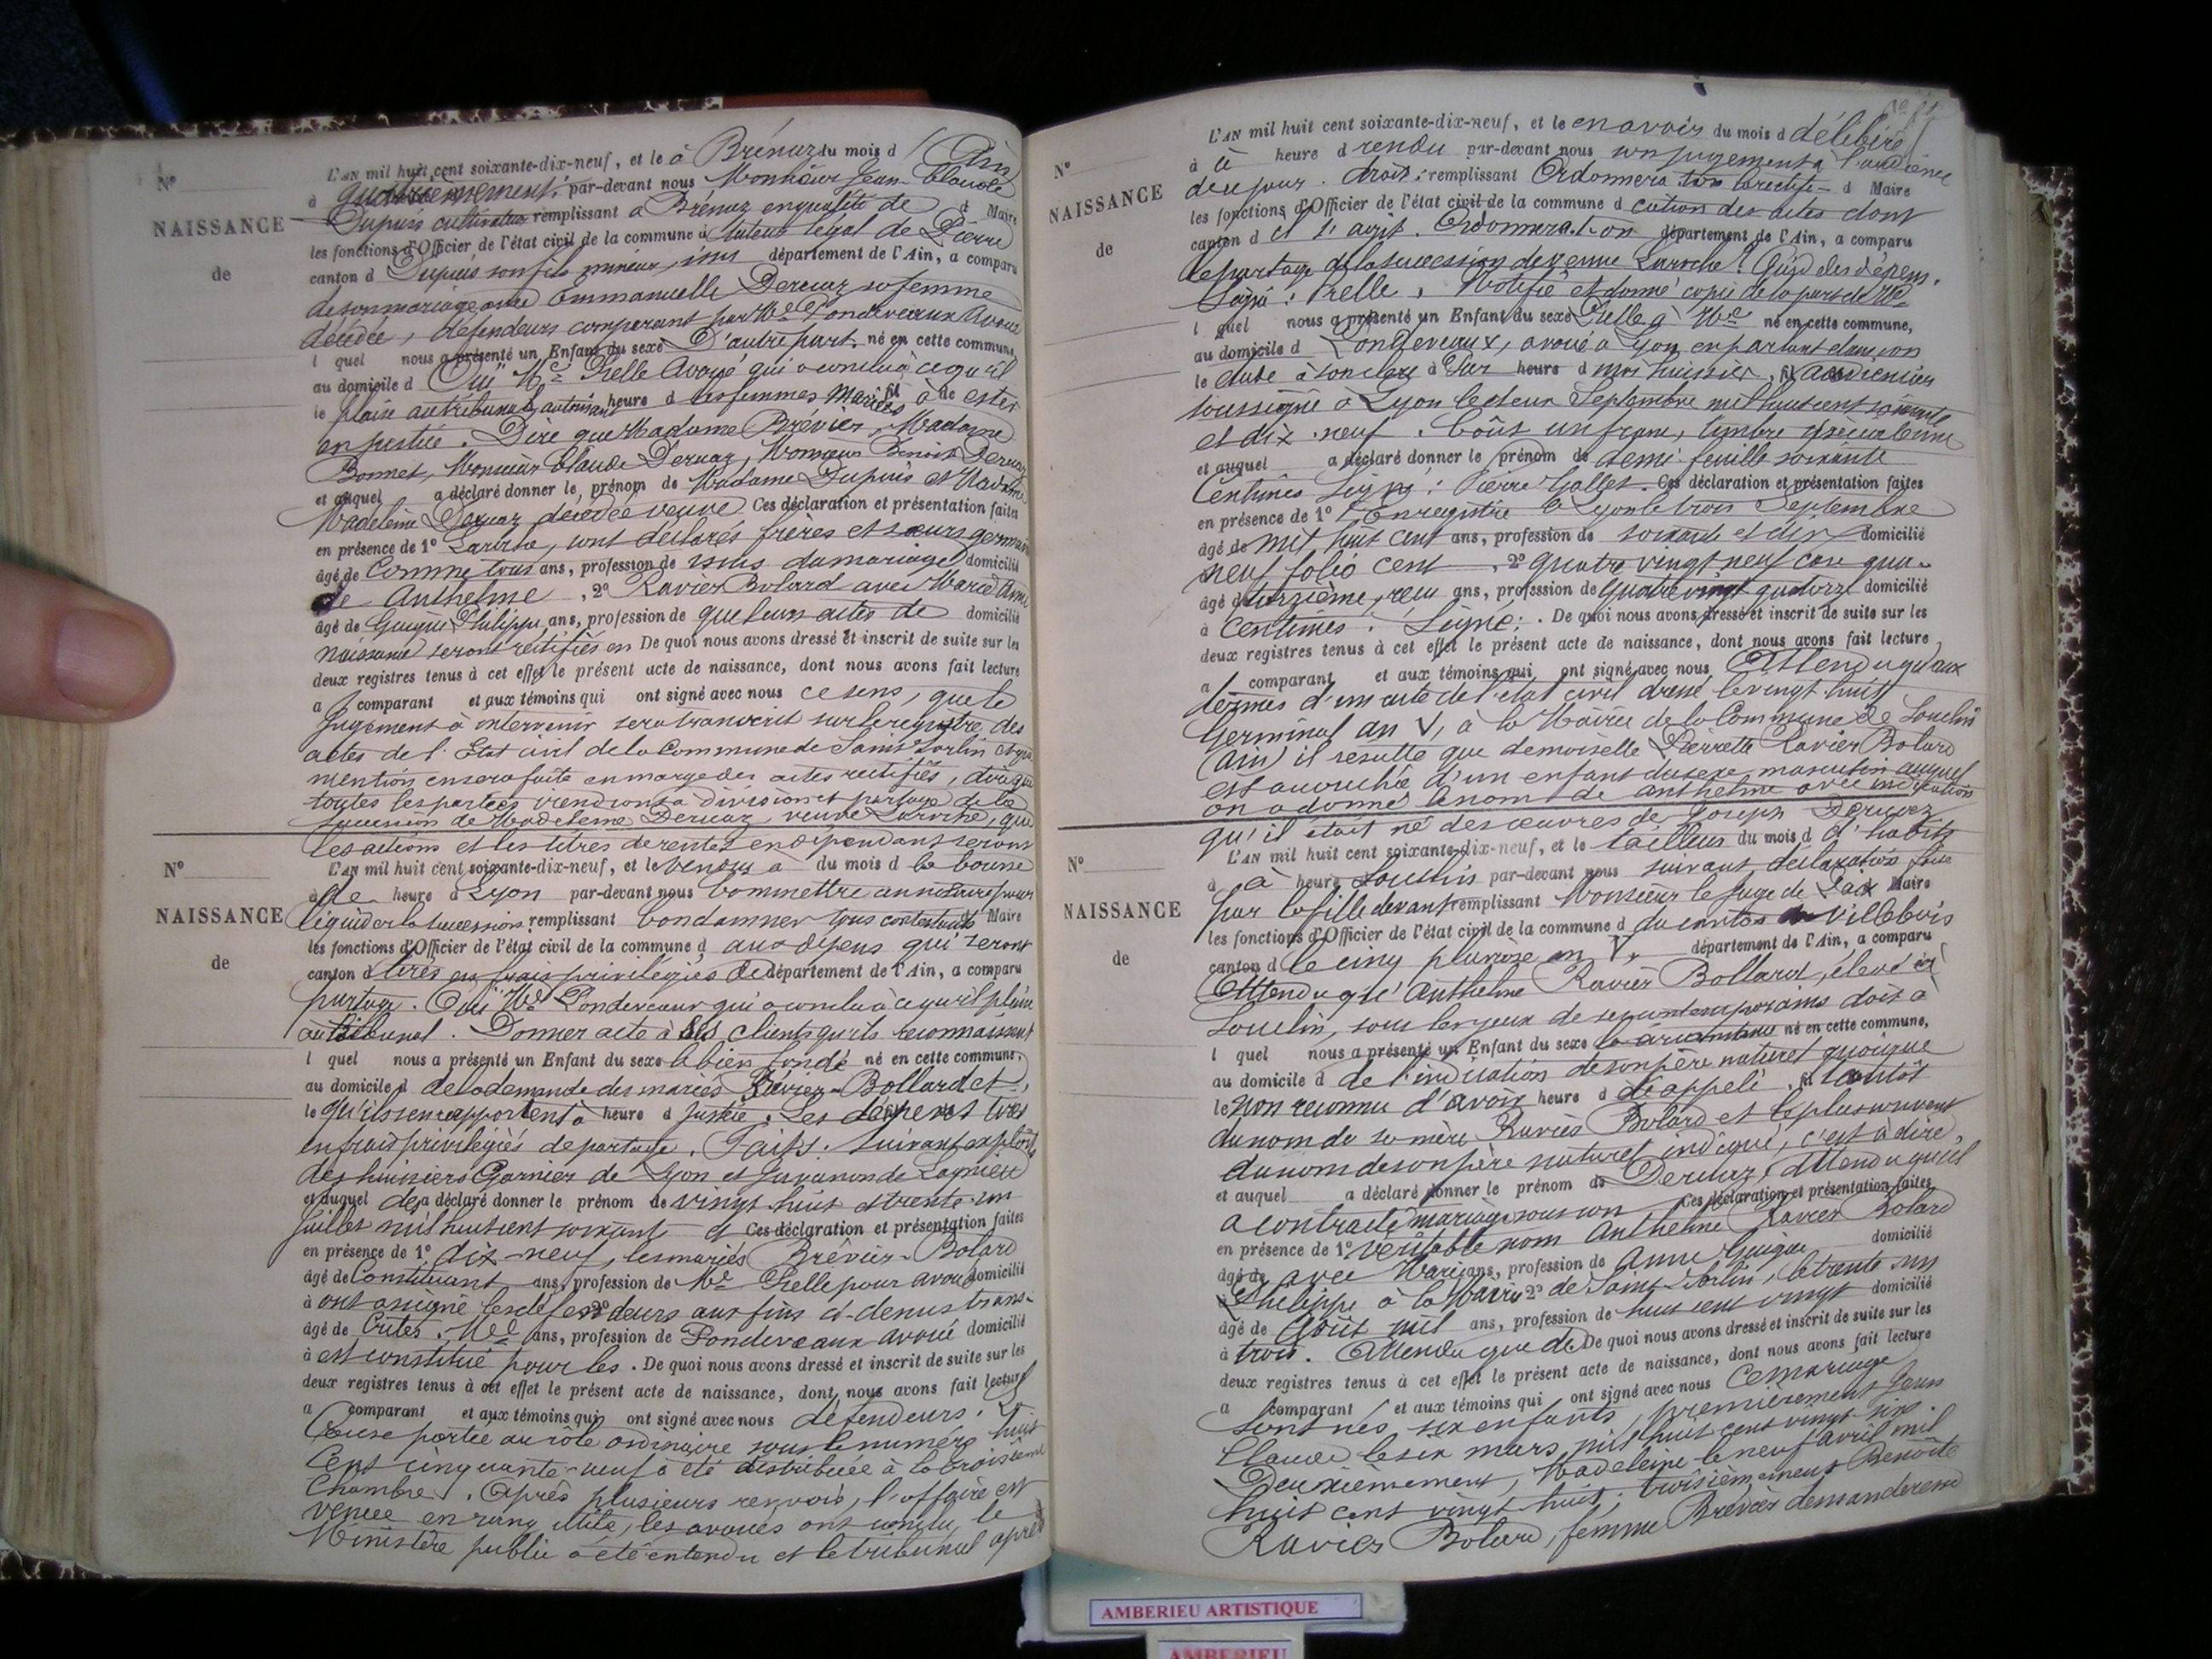 L'AN mil huit cent soixante-dix-neuf, et le à Brénaz du mois d (Ain
à quatrièmement; par-devant nous Monsieur Jean Claude
N° Dupuis cultivateur remplissant à Brénaz en qualité de d Maire
NAISSANCE les fonctions d'Officier de l'état civil de la commune d tuteur légal de Pierre
de canton d Dupuis son fils mineur, issu département de l'Ain, a comparu
de son mariage avec Emmanuelle Deruaz sa femme
décédée, défendeurs comparant par Me Pondeveaux Avoué
l quel nous a présenté un Enfant du sexe D'autre part. né en cette commune,
au domicile d Ouï Me Prelle Avoué qui a conclu à ce qu'il
le plaise au tribunal, autorisant heure d les femmes mariées fil à de ester
en justice. Dire que Madame Brévier, Madame
Bonnet, Monsieur Claude Deruaz, Monsieur Benoit Deruaz
et auquel a déclaré donner le prénom de Madame Dupuis et Madame
Madeleine Deruaz décédée veuve Ces déclaration et présentation faites
en présence de 1° Laroche, sont déclarés frères et sœurs germains
âgé de Comme tous ans, profession de issus du mariage domicilié
de Anthelme , 2° Ravier Bolard avec Marie Anne
âgé de Guigue Philippe, ans, profession de que leurs actes de domicilié
naissance seront rectifiés en De quoi nous avons dressé et inscrit de suite sur les
deux registres tenus à cet effet le présent acte de naissance, dont nous avons fait lecture
a comparant et aux témoins qui ont signé avec nous ce sens, que le
jugement à intervenir sera transcrit sur le registre des
actes de l'Etat civil de la Commune de Saint Sorlin et que
mention en sera faite en marge des actes rectifiés, dire que
toutes les parties viendront à division et partage de la
succession de Madeleine Deruaz, veuve Laroche, que
les actions et les titres de rentes en dépendant seront
N° L'AN mil huit cent soixante-dix-neuf, et le vendus à du mois d la bourse
à de heure d Lyon par-devant nous Commettre un notaire pour
NAISSANCE liquider la succession, remplissant Condamner tous contestants d Maire
les fonctions d'Officier de l'état civil de la commune d aux dépens qui seront
de canton d tirés en frais privilégiés de département de l'Ain, a comparu
partage. Ouï Me Pondeveaux qui a conclu à ce qu'il plaise
au tribunal. Donner acte à ses clients qu'ils reconnaissent
l quel nous a présenté un Enfant du sexe le bien fondé né en cette commune,
au domicile d de la demande des mariés Brévier-Bollard et
le qu'ils s'en rapportent à heure d justice. Les dépens tirés
en frais privilégiés de partage. Faits: Suivant exploits
des huissiers Garnier de Lyon et Juvanon de Lagnieu
et auquel des a déclaré donner le prénom de vingt huit et trente-un
juillet mil huit cent soixante et Ces déclaration et présentation faites
en présence de 1° dix-neuf, les mariés Brévier-Bolard
âgé de Constituant ans, profession de Me Prelle pour avoué domicilié
à ont assigné les défen 2° deurs aux fins ci-dessus trans-
âgé de crites. Me ans, profession de Pondeveaux avoué domicilié
à est constitué pour les . De quoi nous avons dressé et inscrit de suite sur les
deux registres tenus à cet effet le présent acte de naissance, dont nous avons fait lecture
a comparant et aux témoins qui ont signé avec nous défendeurs. La
Cause portée au rôle ordinaire sous le numéro huit
Cent cinquante-neuf a été distribuée à la troisième
Chambre. Après plusieurs renvois, l'affaire est
venue en rang utile, les avoués ont conclu, le
Ministère public a été entendu et le tribunal après
L'AN mil huit cent soixante-dix-neuf, et le en avoir du mois d délibéré
N° à a heure d rendu par-devant nous son jugement à l'audience
de ce jour. droit: remplissant Ordonnera-t-on la rectifi- d Maire
NAISSANCE les fonctions d'Officier de l'état civil de la commune d cation des actes dont
de canton d il s'agit. Ordonnera-t-on département de l'Ain, a comparu
le partage de la succession de veuve Laroche? Quid des dépens.
Signé: Prelle, Notifié et donné copie de la part de Me
l quel nous a présenté un Enfant du sexe Prelle à Me né en cette commune,
au domicile d Pondeveaux, avoué à Lyon en parlant dans son
le étude à son clerc à Par heure d moi huissier, fil audiencier
soussigné à Lyon le deux Septembre mil huit cent soixante
et dix-neuf. Coût un franc, timbre spécial une
et auquel a déclaré donner le prénom de demi-feuille soixante
Centimes Signé: Pierre Gallet. Ces déclaration et présentation faites
en présence de 1° Enregistré à Lyon le trois Septembre
âgé de mil huit cent ans, profession de soixante et dix domicilié
neuf folio cent , 2° quatre vingt neuf case qua-
âgé d torzième, reçu ans, profession de quatre vingt quatorze domicilié
à centimes. Signé: . De quoi nous avons dressé et inscrit de suite sur les
deux registres tenus à cet effet le présent acte de naissance, dont nous avons fait lecture
a comparant et aux témoins qui ont signé avec nous Attendu qu'aux
termes d'un acte de l'état civil dressé le vingt huit
Germinal an V, à la Mairie de la Commune de Souclin
(Ain) il résulte que demoiselle Pierrette Ravier Bolard
est accouchée d'un enfant du sexe masculin auquel
on a donné le nom de Anthelme avec indication
qu'il était né des œuvres de Joseph Deruaz
N° L'AN mil huit cent soixante-dix-neuf, et le tailleur du mois d d'habits
à à heure Souclin par-devant nous suivant déclaration faite
NAISSANCE par la fille devant remplissant Monsieur le Juge de Paix Maire
les fonctions d'Officier de l'état civil de la commune d du canton de Villebois
de canton d le cinq pluviôse an V, département de l'Ain, a comparu
Attendu que Anthelme Ravier Bollard, élevé à
Souclin, sous les yeux de ses contemporains doit à
l quel nous a présenté un Enfant du sexe né en cette commune,
au domicile d de l'indication de son père naturel quoique
le non reconnu d'avoir heure d été appelé fil tantôt
du nom de sa mère Ravier Bolard et le plus souvent
du nom de son père naturel indiqué, c'est à dire,
et auquel a déclaré donner le prénom de Deruaz, attendu qu'il
a contracté mariage sous son Ces déclaration et présentation faites
en présence de 1° véritable nom Anthelme Ravier Bolard
âgé de avec Marie ans, profession de Anne Guigue domicilié
à Philippe à la Mairie 2° de Saint Sorlin, le trente un
âgé de Août mil ans, profession de huit cent vingt domicilié
à trois. Attendu que de De quoi nous avons dressé et inscrit de suite sur les
deux registres tenus à cet effet le présent acte de naissance, dont nous avons fait lecture
a comparant et aux témoins qui ont signé avec nous ce mariage
sont nés six enfants, premièrement Jean
Claude le six mars mil huit cent vingt-six.
Deuxièmement, Madeleine le neuf avril mil
huit cent vingt huit; troisièmement Benoîte
Ravier Bolard, femme Brévier demanderesse
AMBERIEU ARTISTIQUE
AMBERIEU